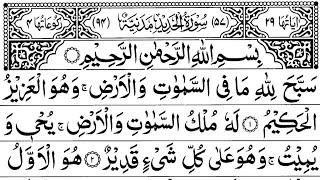 اٰيَاتُهَا ٢٩ (٥٧) سُوْرَةُ الْحَدِيْدِ مَدَنِيَّةٌ (٩٤) رُكُوْعَاتُهَا ٤
بِسْمِ اللّٰهِ الرَّحْمٰنِ الرَّحِيْمِ ○
سَبَّحَ لِلّٰهِ مَا فِى السَّمٰوٰتِ وَالْاَرْضِ ۚ وَهُوَ الْعَزِيْزُ
الْحَكِيْمُ ۝١ لَهٗ مُلْكُ السَّمٰوٰتِ وَالْاَرْضِ ۚ يُحْىٖ وَ
يُمِيْتُ ۚ وَهُوَ عَلٰى كُلِّ شَىْءٍ قَدِيْرٌ ۝٢ هُوَ الْاَوَّلُ